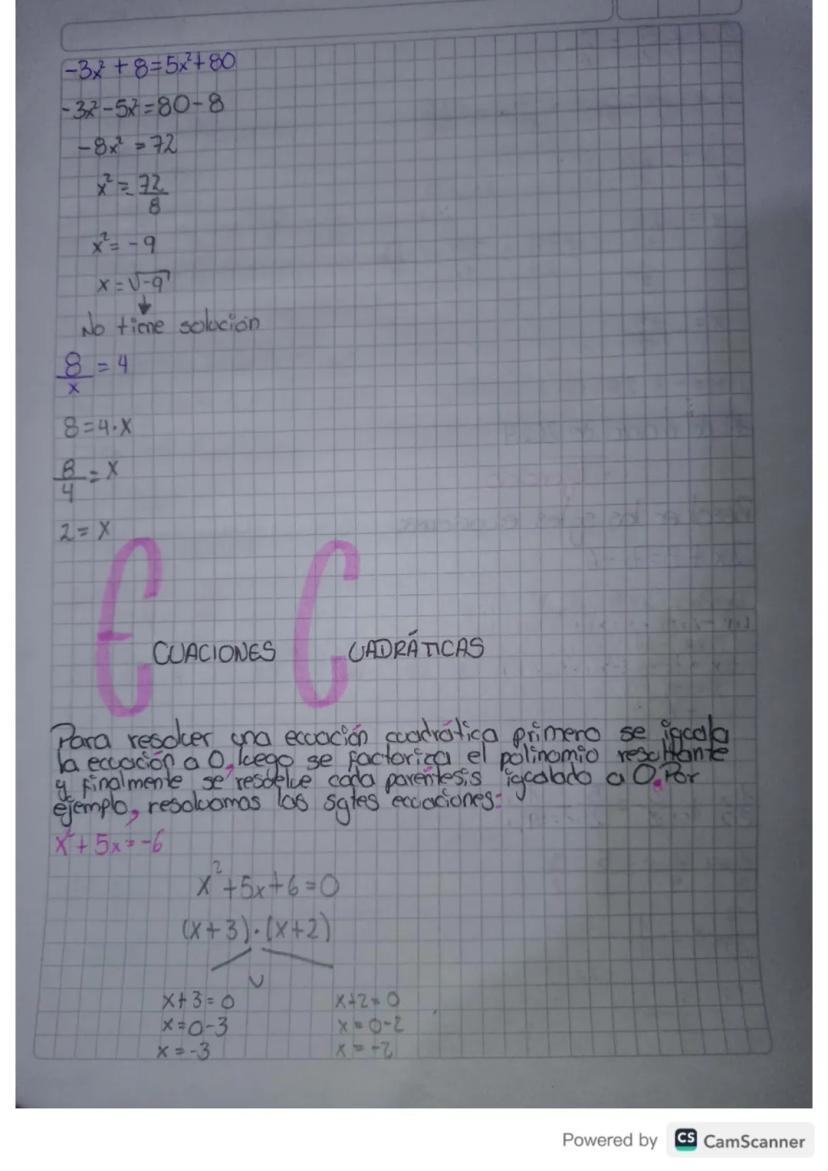 -3x² + 8 = 5x² + 80
-3x² - 5x² = 80 - 8
-8x² = 72
x² = 72/8
x² = -9
x = √-9
↓
No tiene solución
8/x = 4
8 = 4·x
8/4 = x
2 = x
ECUACIONES CUADRÁTICAS
Para resolver una ecuación cuadrática primero se iguala
la ecuación a 0, luego se factoriza el polinomio resultante
y finalmente se resuelve cada paréntesis igualado a 0. Por
ejemplo, resolvamos las sgtes ecuaciones:
x² + 5x = -6
x² + 5x + 6 = 0
(x + 3)·(x + 2)
v
x + 3 = 0 x + 2 = 0
x = 0 - 3 x = 0 - 2
x = -3 x = -2
Powered by CS CamScanner